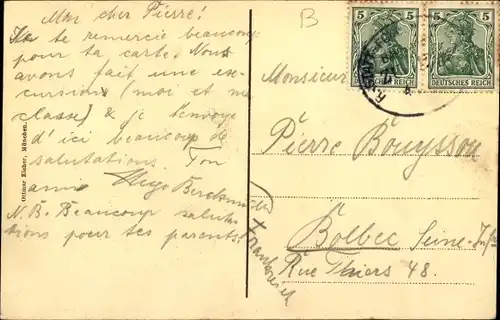 Mon cher Pierre!
Je te remercie beaucoup
pour ta carte. Nous
avons fait une ex-
cursion (moi et ma
classe) & je t'envoye
d'ici beaucoup de
salutations. Ton
ami Hugo
N.B. Beaucoup saluta-
tions pour tes parents.
Ottmar Zieher, München.
B
5 5 5 5
DEUTSCHES REICH DEUTSCHES REICH
Monsieur
Pierre Bouysson
Bolbec Seine-Inf.
Rue Thiers 48.
Frankreich